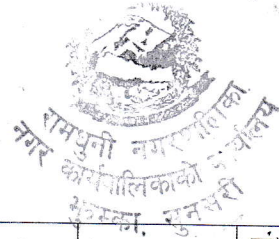 रामधुनी नगरपालिका
नगर कार्यपालिकाको कार्यालय
सुनसरी